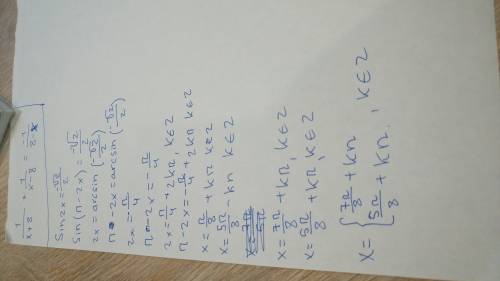 1/(x+8) + 1/(x-8) = -1/(8-x)
Sin2x=-√2/2
Sin(π-2x)=-√2/2
2x=arcsin(-√2/2)
π-2x=arcsin(-√2/2)
2x=-π/4
π-2x=-π/4
2x=-π/4+2kπ, k∈Z
π-2x=-π/4+2kπ k∈Z
x=-π/8+kπ k∈Z
x=5π/8-kπ k∈Z
x=7π/8+kπ, k∈Z
x=5π/8+kπ, k∈Z
x={7π/8+kπ
{5π/8+kπ, k∈Z